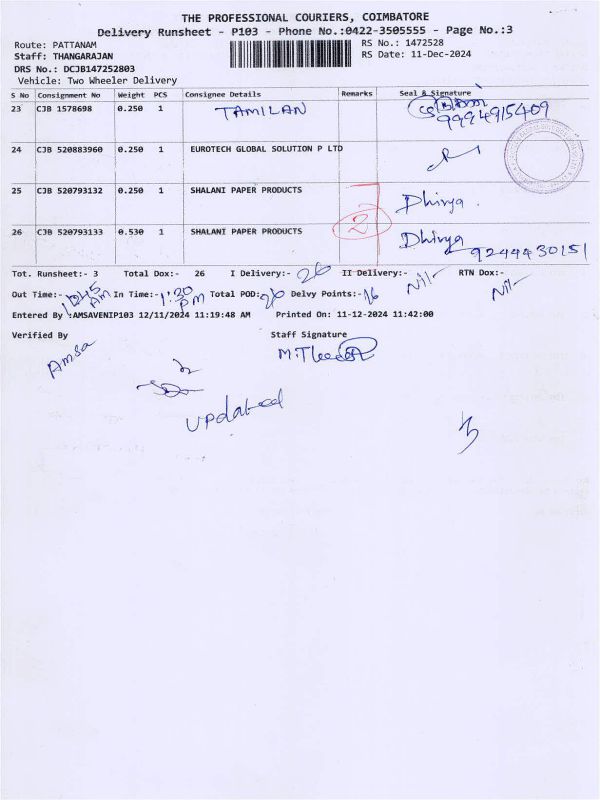 THE PROFESSIONAL COURIERS, COIMBATORE
Delivery Runsheet - P103 - Phone No.:0422-3505555 - Page No.:3
Route: PATTANAM
RS No.: 1472528
Staff: THANGARAJAN
RS Date: 11-Dec-2024
DRS No.: DCJB147252803
Vehicle: Two Wheeler Delivery
S No Consignment No Weight PCS Consignee Details Remarks Seal & Signature
23 CJB 1578698 0.250 1 TAMILAN 9994915409
24 CJB 520883960 0.250 1 EUROTECH GLOBAL SOLUTION P LTD
25 CJB 520793132 0.250 1 SHALANI PAPER PRODUCTS Dhivya
2
26 CJB 520793133 0.530 1 SHALANI PAPER PRODUCTS Dhivya
9244430151
Tot. Runsheet:- 3 Total Dox:- 26 I Delivery:- 26 II Delivery:- Nil- RTN Dox:- Nil-
Out Time:- AM In Time:- 1:30 PM Total POD: 26 Delvy Points:- 16
Entered By :AMSAVENIP103 12/11/2024 11:19:48 AM Printed On: 11-12-2024 11:42:00
Verified By Staff Signature
Amsa
updated